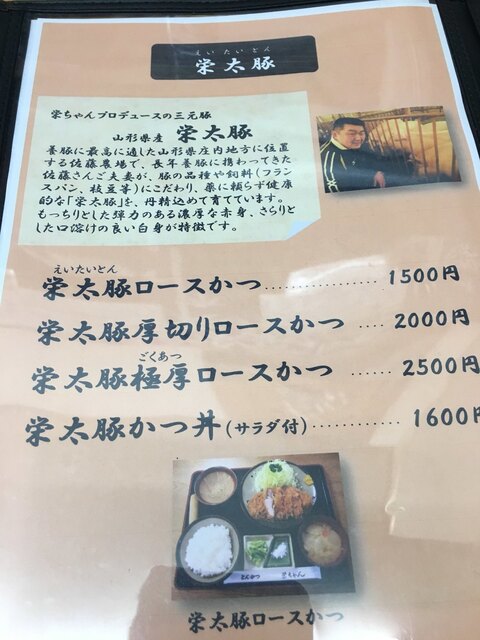 えいたいとん
栄太豚
栄ちゃんプロデュースの三元豚
山形県産 栄太豚
養豚に最高に適した山形県庄内地方に位置
する佐藤農場で、長年養豚に携わってきた
佐藤さんご夫妻が、豚の品種や飼料(フランス
スパン、枝豆等)にこだわり、薬に頼らず健康
的な「栄太豚」を、丹精込めて育てています。
もっちりとした弾力のある濃厚な赤身、さらりと
した口溶けの良い白身が特徴です。
えいたいとん
栄太豚ロースかつ.................. 1500円
栄太豚厚切りロースかつ ..... 2000円
ごくあつ
栄太豚極厚ロースかつ ...... 2500円
栄太豚かつ丼(サラダ付)............ 1600円
とんかつ 栄ちゃん
栄太豚ロースかつ